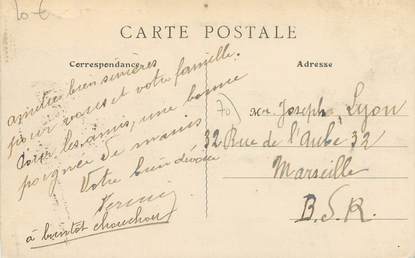 10 €
CARTE POSTALE
Correspondance
Adresse
amitié bien sincères
pour vous et votre famille.
Pour les amis, une bonne
poignée de mains
Votre bien dévoué
à bientôt chouchou
70)
Mr Joseph Lyon
32 Rue de l'Aubé 32
Marseille
B. S. R.